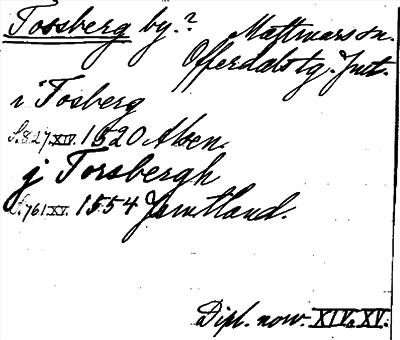 Tossberg by.? Mattmars sn.
Offerdals tg. Jmt.
i Tosberg
S. 827. XIV. 1520 Alsen.
j Torsbergh
S. 761. XV. 1554 Jemtland.
Dipl. norv. XIV. XV.